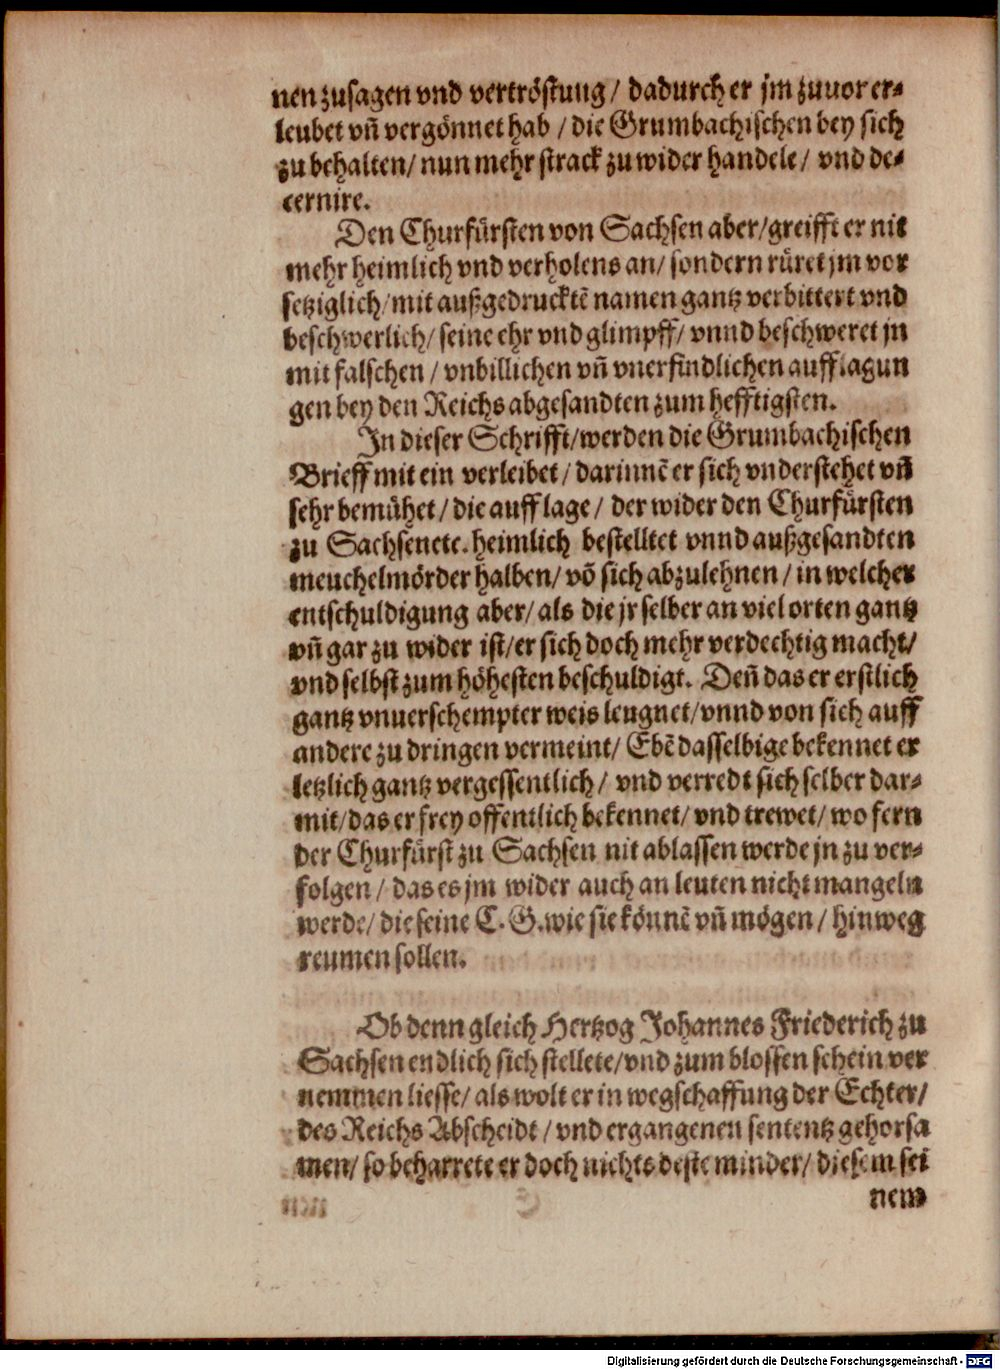 nen zusagen vnd vertröstung / dadurch er jm zuuor er-
leubet vn̄ vergönnet hab / die Grumbachischen bey sich
zu behalten / nun mehr strack zu wider handele / vnd de-
cernire.
Den Churfürsten von Sachsen aber / greifft er nit
mehr heimlich vnd verholens an / sondern rüret jm vor
setziglich / mit außgedrucktē namen gantz verbittert vnd
beschwerlich / seine ehr vnd glimpff / vnnd beschweret jn
mit falschen / vnbillichen vn̄ vnerfindlichen aufflagun
gen bey den Reichs abgesandten zum hefftigsten.
In dieser Schrifft / werden die Grumbachischen
Brieff mit ein verleibet / darinnē er sich vnderstehet vn̄
sehr bemühet / die aufflage / der wider den Churfürsten
zu Sachsen etc. heimlich bestelltet vnnd außgesandten
meuchelmörder halben / vō sich abzulehnen / in welcher
entschuldigung aber / als die jr selber an viel orten gantz
vn̄ gar zu wider ist / er sich doch mehr verdechtig macht /
vnd selbst zum höhesten beschuldigt. Den̄ das er erstlich
gantz vnuerschempter weis leugnet / vnnd von sich auff
andere zu dringen vermeint / Ebē dasselbige bekennet er
letzlich gantz vergessentlich / vnd verredt sich selber dar-
mit / das er frey offentlich bekennet / vnd trewet / wo fern
der Churfürst zu Sachsen nit ablassen werde jn zu ver-
folgen / das es jm wider auch an leuten nicht mangeln
werde / die seine C. G. wie sie könnē vn̄ mögen / hinweg
reumen sollen.
Ob denn gleich Hertzog Johannes Friederich zu
Sachsen endlich sich stellete / vnd zum blossen schein ver
nemmen liesse / als wolt er in wegschaffung der Echter /
des Reichs Abscheidt / vnd ergangenen sententz gehorsa
men / so beharrete er doch nichts deste minder / diesem sei
nem
Digitalisierung gefördert durch die Deutsche Forschungsgemeinschaft - DFG